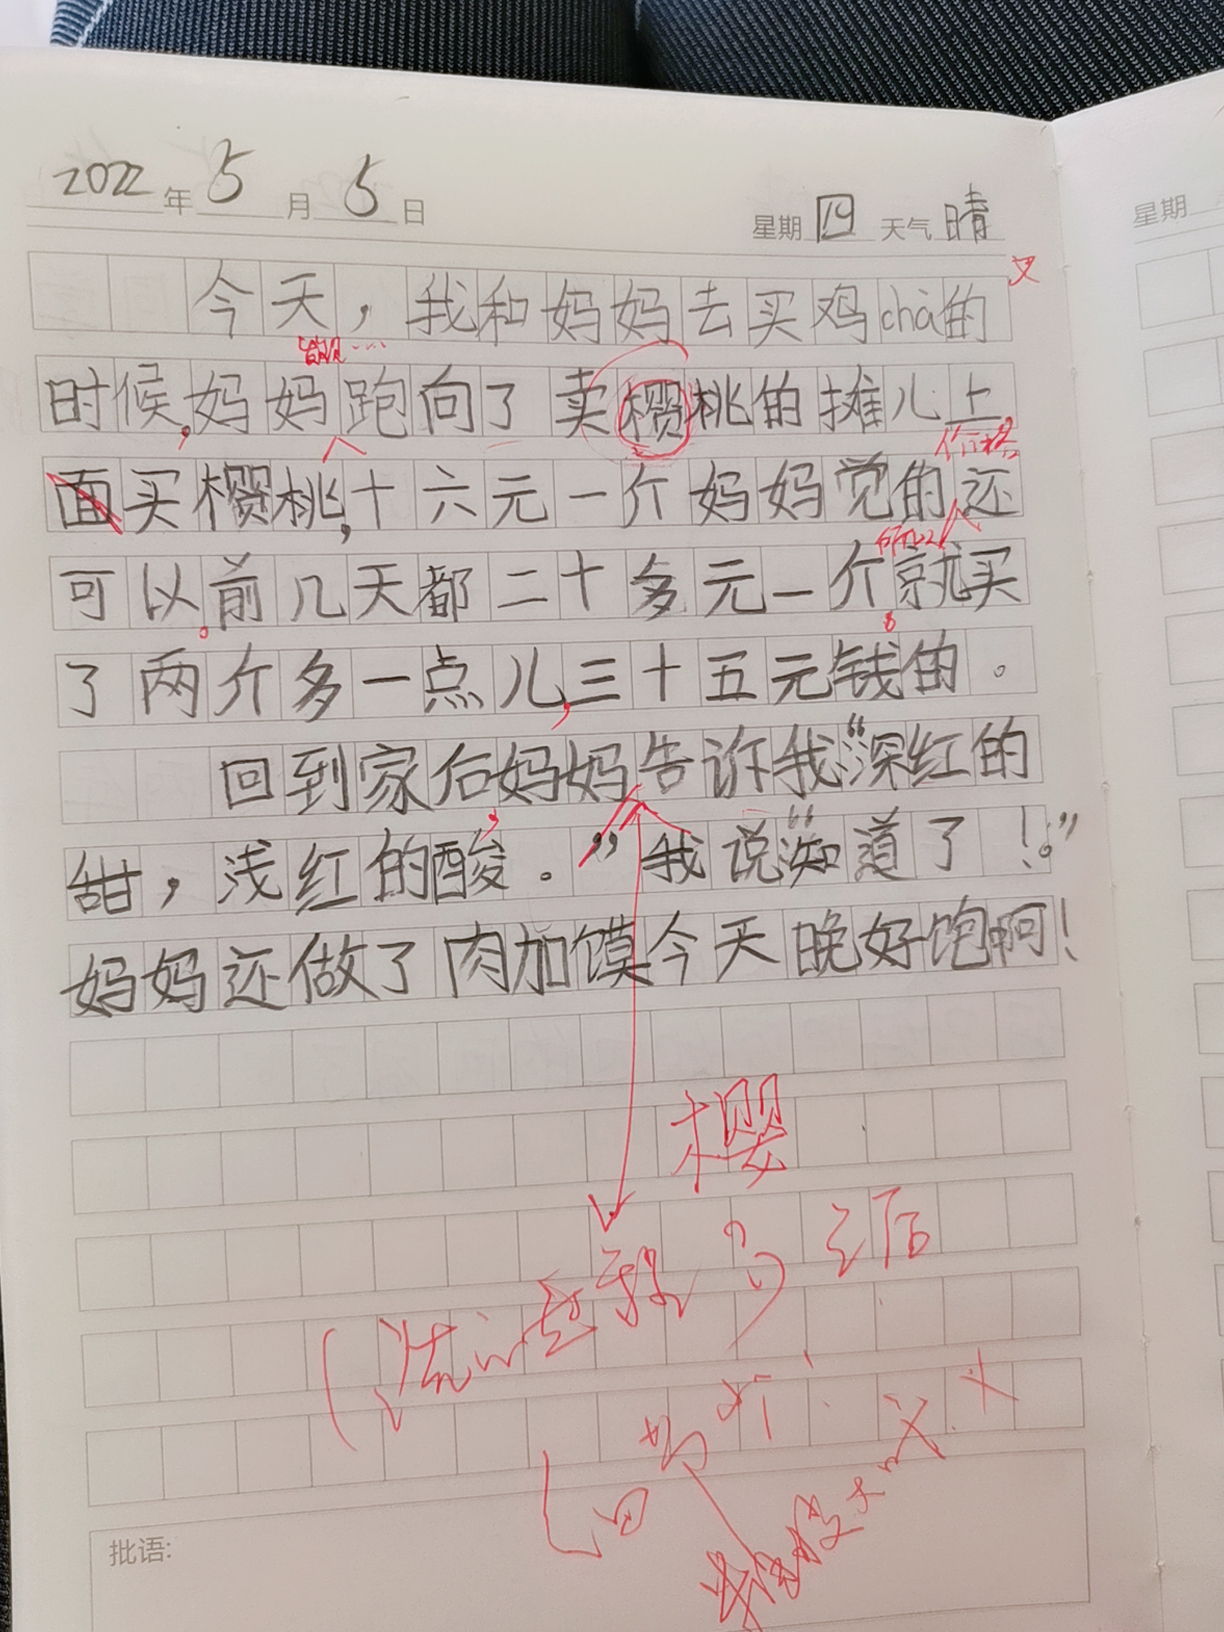 2022年5月5日 星期四 天气晴
今天，我和妈妈去买鸡chà的
又
时候,妈妈跑向了卖樱桃的摊儿上,
价格
面买樱桃,十六元一斤妈妈觉的还
所以
可以。前几天都二十多元一斤。就买
了两斤多一点儿,三十五元钱的。
回到家后,妈妈告诉我“深红的
甜，浅红的酸。”我说“知道了！。”
妈妈还做了肉加馍今天晚好饱啊！
樱
之后
批语:
星期